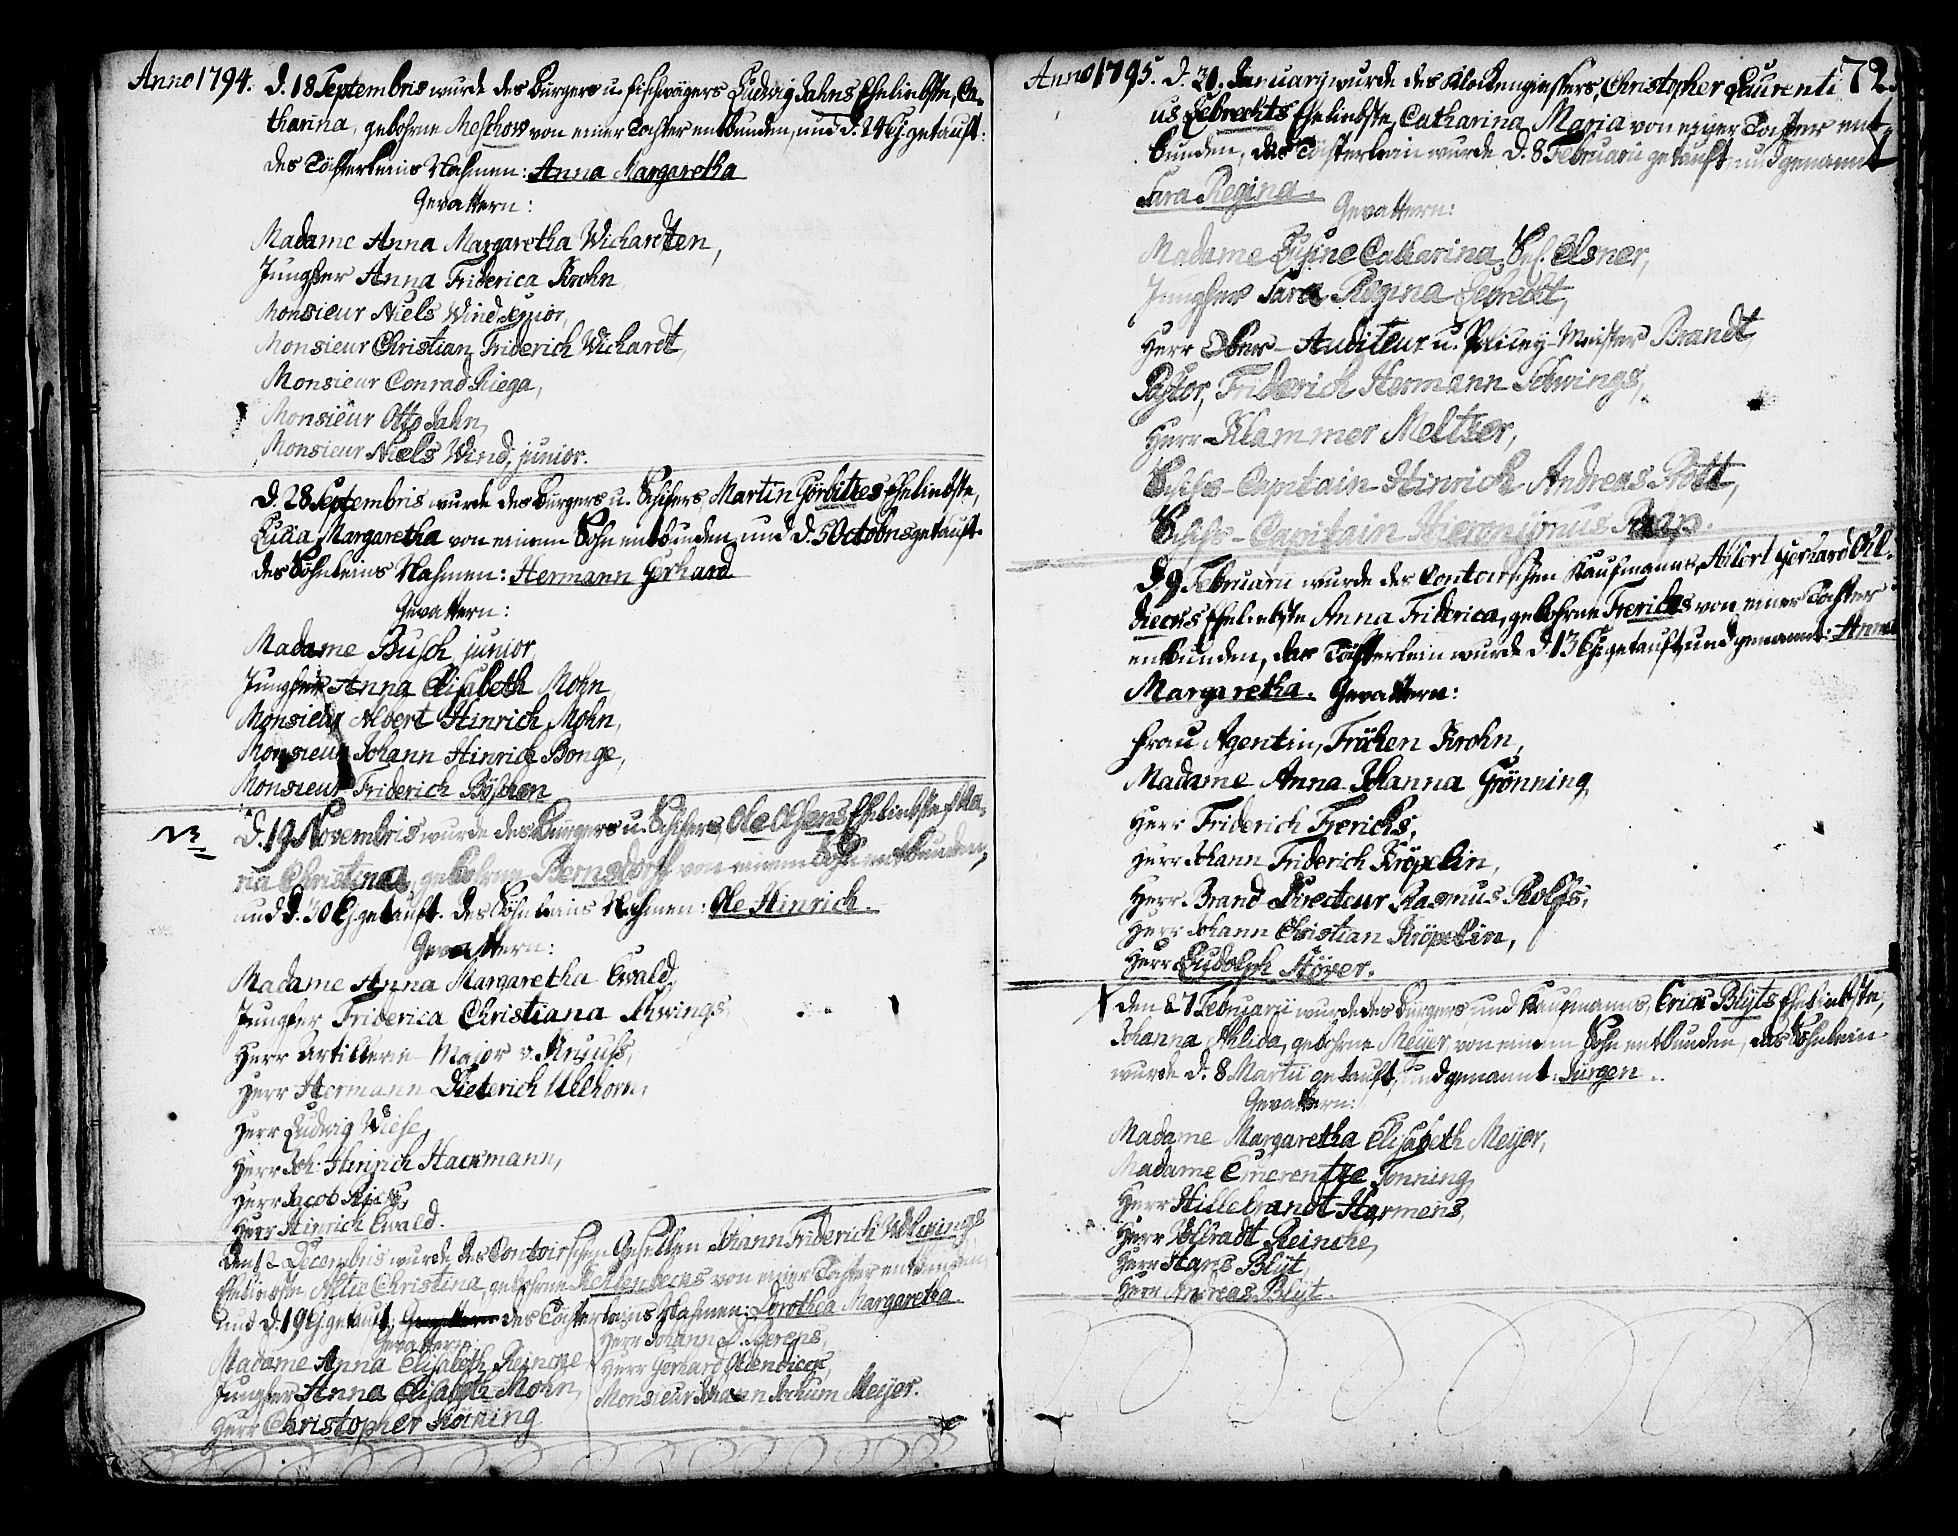 Anno 1794. D. 18 Septembris wurde des Bürgers u. Fischwägers Ludwig Jahns Eheliebste, Ca-
tharina, gebohrne Meschow von einer Tochter entbunden, und d. 24 Ej. getauft:
des Töchterleins Nahmen: Anna Margaretha
Gevattern:
Madame Anna Margaretha Wichardten,
Jungfer Anna Friderica Krohn
Monsieur Niels Wind senior,
Monsieur Christian Friderich Wichardt,
Monsieur Conrad Riega,
Monsieur Otto Jahn,
Monsieur Niels Wind, junior.
D. 28 Septembris wurde des Bürgers u. Schifers, Martin Görbitzes Eheliebste,
Lucia Margaretha von einem Sohn entbunden, und d. 5 Octobris getauft.
des Söhnleins Nahmen: Hermann Gerhard
Gevattern:
Madame Busch, junior
Jungfer Anna Elisabeth Mohn
Monsieur Albert Hinrich Mohn,
Monsieur Johann Hinrich Bonge,
Monsieur Friderich Büschen
D. 19 Novembris wurde des Bürgers u. Schifers Ole Olsens Eheliebste, Ma-
ria Christina, gebohrne Bernsdorf von einem Sohn entbunden,
und d. 30 Ej. getauft. des Söhnleins Nahmen: Ole Hinrich.
Gevattern:
Madame Anna Margaretha Ewald,
Jungfer Friderica Christiana Schwings,
Herr Artillerie Major v. Knjuss,
Herr Hermann Dieterich Ulhorn,
Herr Ludwig Wiese,
Herr Joh. Hinrich Hackmann,
Herr Jacob
Herr Hinrich Ewald.
Den 12 Decembris wurde des Contoirschen Gesellen Johann Friderich
Eheliebste Altie Christina, gebohrne Kellenbecks von einer Tochter entbunden,
und d. 19 Ej. getauft; des Töchterleins Nahmen: Dorothea Margaretha
Gevattern:
Madame Anna Elisabeth Reincke
Jungfer Anna Elisabeth Mohn,
Herr Christopher Köning
Herr Johann D. Berens,
Herr Gerhard Oldendieck,
Monsieur Johann Jochum Meijer.
Anno 1795. D. 31. Januarij wurde des Klockengiessers, Christopher Laurenti 72.
us Ebrechts Eheliebste, Catharina Maria von einer Tochter ent-
bunden, das Töchterlein wurde d. 8 Februarii getauft, und genannt
Sara Regina.
Gevattern:
Madame Lusine Catharina, Sel. Elsner,
Jungfer Sara Regina Ebrecht,
Herr Ober-Auditeur u. Policey-Meister Brandt,
Pastor, Friderich Hermann Schwings,
Herr Klammer Meltzer,
Schifs-Capitain Hinrich Andreas Pott,
Schifs-Capitain Hieronymus
D. 9. Februarii wurde des Contoirschen Kaufmanns, Albert Gerhard Old.
diecks Eheliebste Anna Friderica, gebohrne Frerichs von einer Tochter
entbunden, das Töchterlein wurde d. 13 Ej. getauft, und genannt: Anna
Margaretha. Gevattern:
Frau Agentin, Fräken Krohn,
Madame Anna Johanna Grönning,
Herr Friderich Frerichs,
Herr Johann Friderich Kröpelin,
Herr Brand Directeur Rasmus Rolfs,
Herr Johann Christian Kröpelin,
Herr Ludolph Stöver.
Den 27 Februarii wurde des Bürgers, und Kaufmanns, Erick Blijts Eheliebste,
Johanna Ahlida, gebohrne Meijer, von einem Sohn entbunden, das Söhnlein
wurde d. 8 Martii getauft, und genannt: Jürgen.
Gevattern:
Madame Margaretha Elisabeth Meijer,
Madame Emerentze Tonning
Herr Hillebrandt Harmens,
Herr Volbradt Reincke,
Herr Hans Blijt,
Herr Andreas Blijt.